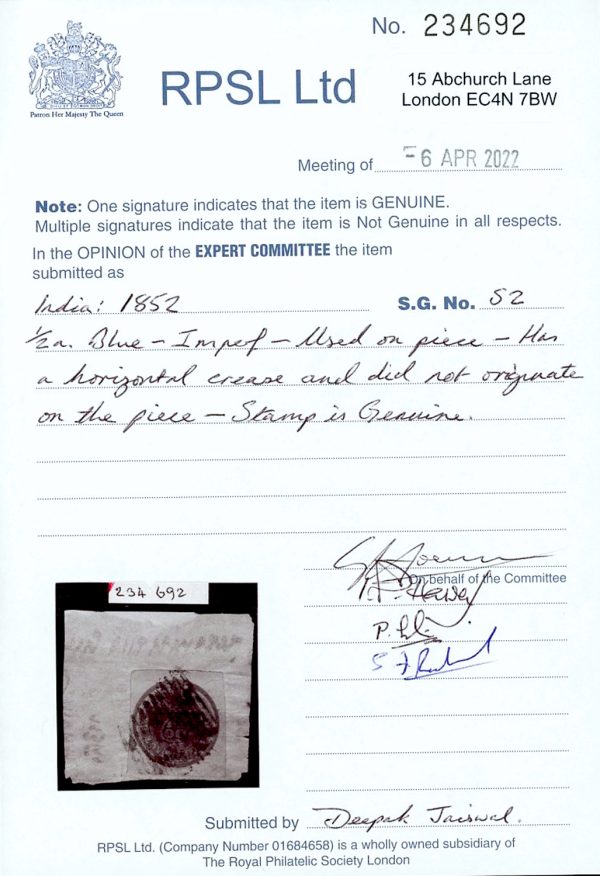 No. 234692
Patron Her Majesty The Queen
RPSL Ltd
15 Abchurch Lane
London EC4N 7BW
Meeting of -6 APR 2022
Note: One signature indicates that the item is GENUINE.
Multiple signatures indicate that the item is Not Genuine in all respects.
In the OPINION of the EXPERT COMMITTEE the item
submitted as
India: 1852 S.G. No. S2
1/2a. Blue - Imperf - Used on piece - Has
a horizontal crease and did not originate
on the piece - Stamp is Genuine.
On behalf of the Committee
234 692
Submitted by Deepak Jaiswal.
RPSL Ltd. (Company Number 01684658) is a wholly owned subsidiary of
The Royal Philatelic Society London